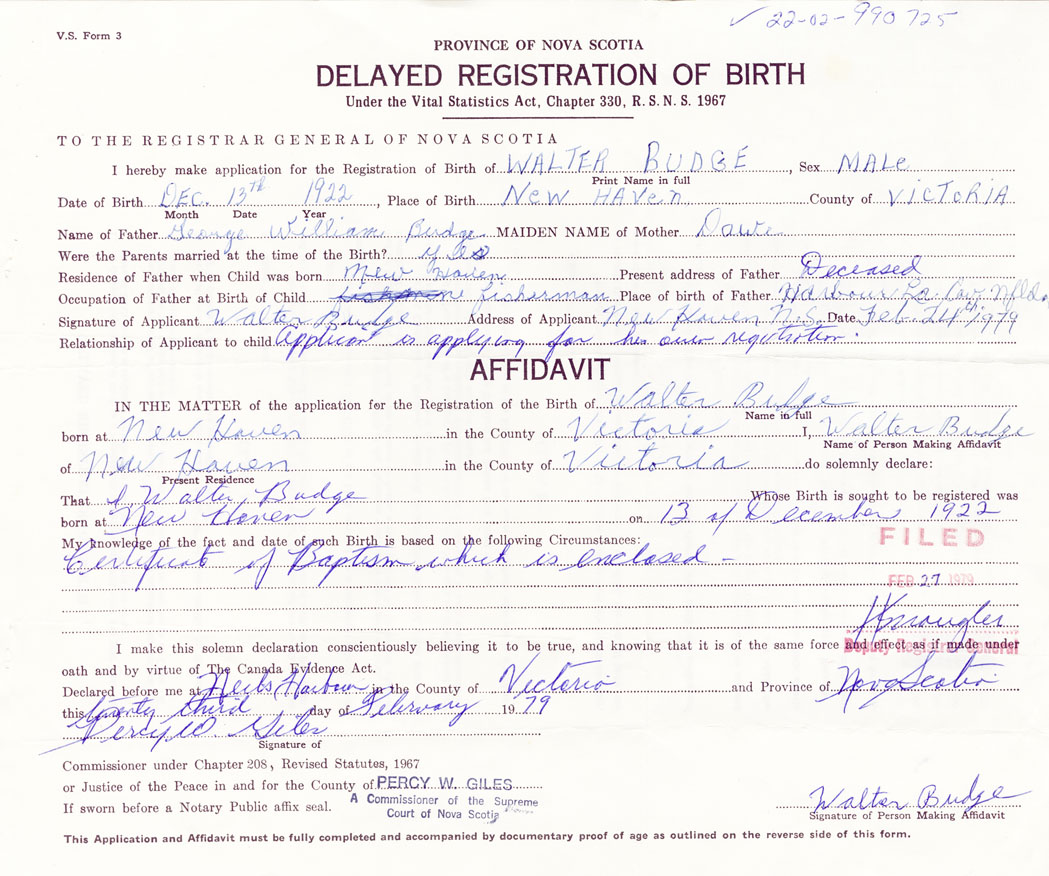 ✓ 22-02-990725
V.S. Form 3
PROVINCE OF NOVA SCOTIA
DELAYED REGISTRATION OF BIRTH
Under the Vital Statistics Act, Chapter 330, R.S.N.S. 1967
TO THE REGISTRAR GENERAL OF NOVA SCOTIA
I hereby make application for the Registration of Birth of WALTER BUDGE, Sex MALe
Print Name in full
Date of Birth DEC. 13TH 1922, Place of Birth NeW HAVeN County of VICTORIA
Month Date Year
Name of Father George William Budge MAIDEN NAME of Mother Dawe
Were the Parents married at the time of the Birth? yes
Residence of Father when Child was born New Haven Present address of Father Deceased
Occupation of Father at Birth of Child fisherman Place of birth of Father Harbour Le Cou Nfld.
Signature of Applicant Walter Budge Address of Applicant New Haven N.S. Date Feb. 24th/1979
Relationship of Applicant to child Applicant is applying for his own registration.
AFFIDAVIT
IN THE MATTER of the application for the Registration of the Birth of Walter Budge
Name in full
born at New Haven in the County of Victoria I, Walter Budge
Name of Person Making Affidavit
of New Haven in the County of Victoria do solemnly declare:
Present Residence
That I, Walter Budge Whose Birth is sought to be registered was
born at New Haven on 13 of December 1922
My knowledge of the fact and date of such Birth is based on the following Circumstances:
Certificate of Baptism which is enclosed -
FILED
FEB 27 1979
Deputy Registrar General
I make this solemn declaration conscientiously believing it to be true, and knowing that it is of the same force and effect as if made under
oath and by virtue of The Canada Evidence Act.
Declared before me at Neils Harbour in the County of Victoria and Province of Nova Scotia
this twenty third day of February 1979
Percy W. Giles
Signature of
Commissioner under Chapter 208, Revised Statutes, 1967
or Justice of the Peace in and for the County of PERCY W. GILES
A Commissioner of the Supreme
If sworn before a Notary Public affix seal.
Court of Nova Scotia
Walter Budge
Signature of Person Making Affidavit
This Application and Affidavit must be fully completed and accompanied by documentary proof of age as outlined on the reverse side of this form.